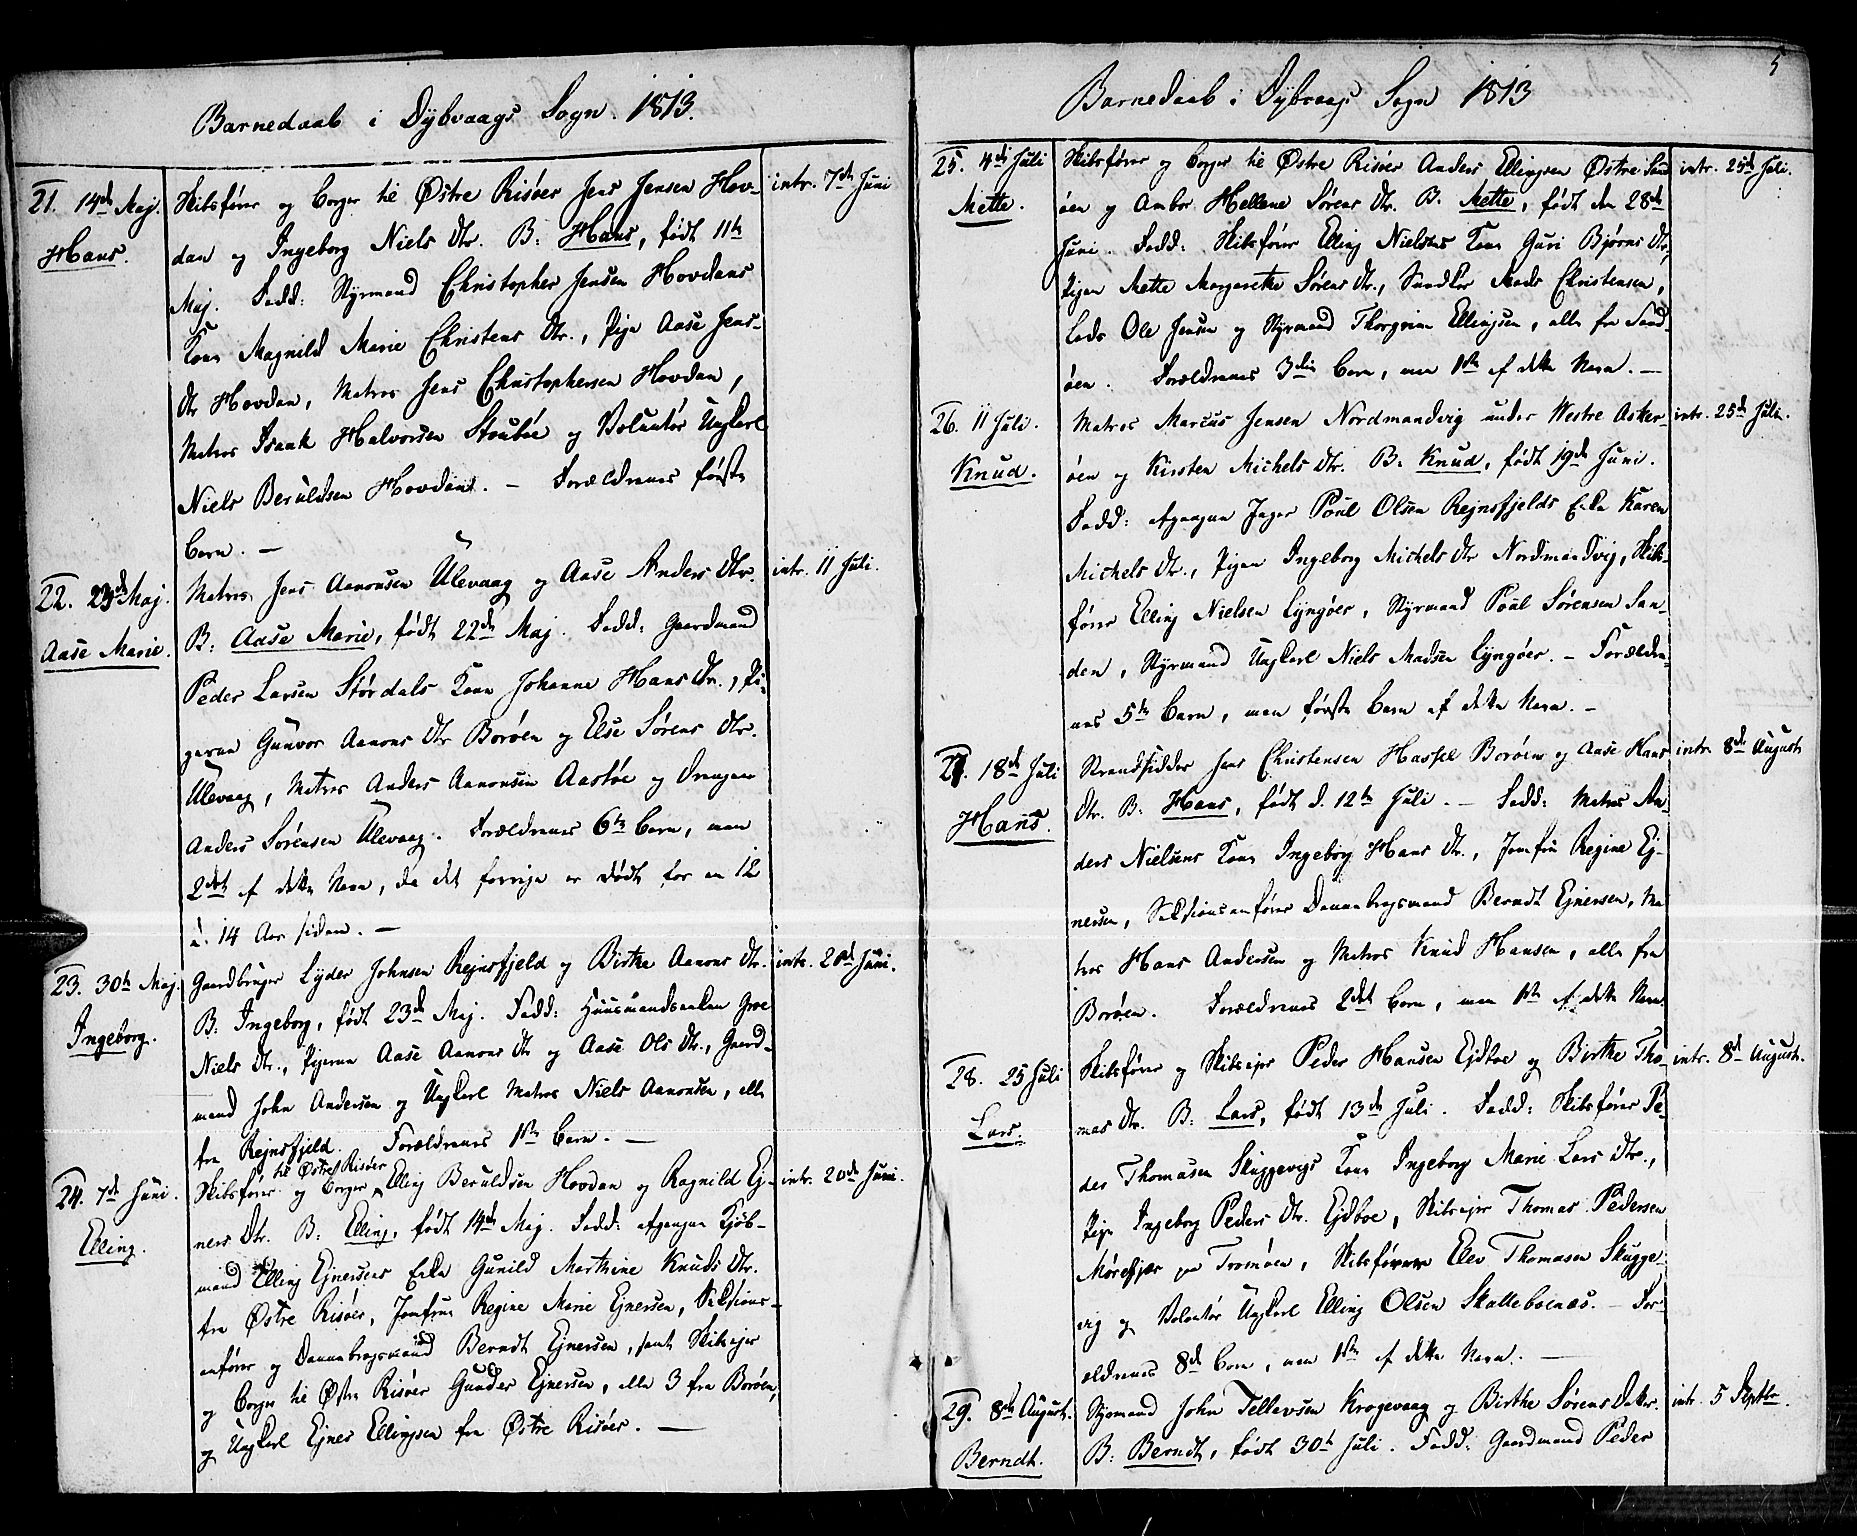 Barnedaab i Dÿbvaags Sogn. 1813.
21. 14de Maj.
Hans.
Skibsfører og Borger til Østre Risøer Jens Jensen Hov-
dan og Ingeborg Niels Dtr. B: Hans, født 11te
Maj. Fadd: Styrmand Christopher Jensen Hovdans
Kone Magnild Marie Christens Dtr., Pige Aase Jens-
Dtr Hovdan, Matros Jens Christophersen Hovdan,
Matros Isaak Halvorsen Stoubøe og Volontør Ungkarl
Niels Beruldsen Hovdan. – Forældrenes første
Barn. –
intr. 7de Juni
22. 23de Maj.
Aase Marie.
Matros Jens Aanonsen Ulevaag og Aase Anders Dtr.
B: Aase Marie, født 22de Maj. Fadd: Gaardmand
Peder Larsen Størdals Kone Johanne Hans Dtr., Pi-
gerne Gunvor Aanons Dtr Borøen og Else Sørens Dtr.
Ulevaag, Matros Anders Aanonsen Aastøe og Drengen
Anders Sørensen Ulevaag. Forældrenes 6te Barn, men
2det af dette Navn, da det forrige er dødt for en 12
à 14 Aar siden. –
intr. 11 Juli.
23. 30te Maj.
Ingeborg.
Gaardbruger Lyder Johnsen Rejnsfjeld og Birthe Aanons Dtr.
B: Ingeborg, født 23de Maj. Fadd: Huusmandsenken Groe
Niels Dtr., Pigerne Aase Aanons Dtr og Aase Ols Dtr., Gaard-
mand John Andersen og Ungkarl Matros Niels Aanonsen, alle
fra Rejnsfjeld. Forældrenes 1ste Barn. –
intr. 20de Juni.
24. 7de Juni.
Elling.
til Østre Risøer
Skibsfører og Borger Elling Beruldsen Hovdan og Ragnild Ej-
ners Dtr. B: Elling, født 14de Maj. Fadd: afgangne Kjøb-
mand Elling Ejnersens Enke Gunild Marthine Knuds Dtr.
fra Østre Risøer, Jomfrue Regine Marie Ejnersen, Sektions-
anfører og Dannebrogsmand Berndt Ejnersen, samt Skibsejer
og Borger til Østre Risøer Gunder Ejnersen, alle 3 fra Borøen,
og Ungkarl Ejner Ellingsen fra Østre Risøer. –
intr. 20de Juni.
5
Barnedaab i Dÿbvaags Sogn 1813
25. 4de Juli
Mette.
Skibsfører og Borger til Østre Risøer Anders Ellingsen Østre Sand
øen og Ambor Hellene Sørens Dtr. B. Mette, født den 28de
Juni. Fadd: Skibsfører Elling Nielsens Kone Guri Bjørns Dtr,
Pigen Mette Margrethe Sørens Dtr., Mads Christensen,
Lods Ole Jensen og Styrmand Thorgrim Ellingsen, alle fra Sand-
øen. Forældrenes 3die Barn, men 1ste af dette Navn. –
intr. 25de Juli.
26. 11 Juli.
Knud.
Matros Marcus Jensen Nordmandvig under Westre Asker-
øen og Kirsten Michels Dtr. B: Knud, født 19de Juni.
Fadd: afgangne Poul Olsen Rejnsfjelds Enke Karen
Michels Dtr., Pigen Ingeborg Michels Dtr Nordmandvig, Skibs-
fører Elling Nielsen Lyngøer, Styrmand Poul Sørensen San-
den, Styrmand Ungkarl Niels Madsen Lyngøer. – Forældre-
nes 5te Barn, men første Barn af dette Navn. –
intr. 25de Juli.
27. 18de Juli
Hans.
Strandsidder Jens Christensen Hassel Borøen og Aase Hans
Dtr. B: Hans, født d. 12te Juli. – Fadd: Matros An-
ders Nielsens Kone Ingeborg Hans Dtr., Jomfru Regine Ej-
nersen, Sektionsanfører Dannebrogsmand Berndt Ejnersen, Ma
tros Hans Andersen og Matros Knud Hansen, alle fra
Borøen. Forældrenes 2det Barn, men 1ste af dette Navn
intr. 8de August
28. 25 Juli
Lars.
Skibsfører og Skibsejer Peder Hansen Ejdboe og Birthe Tho-
mas Dtr. B: Lars, født 13de Juli. Fadd: Skibsfører Pe-
der Thomasen Skuggevigs Kone Ingeborg Marie Lars Dtr.,
Pige Ingeborg Peders Dtr. Ejdboe, Skibsejer Thomas Pedersen
Mørefjær paa Tromøen, Skibsførerne Elev Thomasen Skugge-
vig og Volontør Ungkarl Elling Olsen Skatteboenæs. – For-
ældrenes 8de Barn, men 1ste af dette Navn. –
intr. 8de August.
29. 8de August.
Berndt.
Styrmand John Tellevsen Krogevaag og Birthe Sørens Datter.
B: Berndt, født 30te Juli. Fadd: Gaardmand Peder
intr. 5 Septbr.